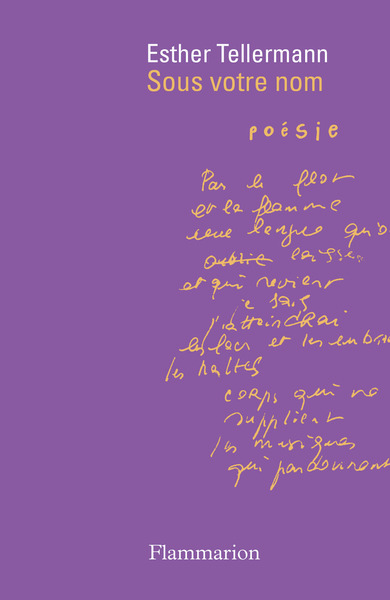 Esther Tellermann
Sous votre nom
poésie
Par le flot
et la flamme
une langue qu'o
oublie laisse
et qui revient
je sais
j'attendrai
les lacs et les embra
les haltes
corps qui ne
supplient
les musiques
qui pardonnent
Flammarion